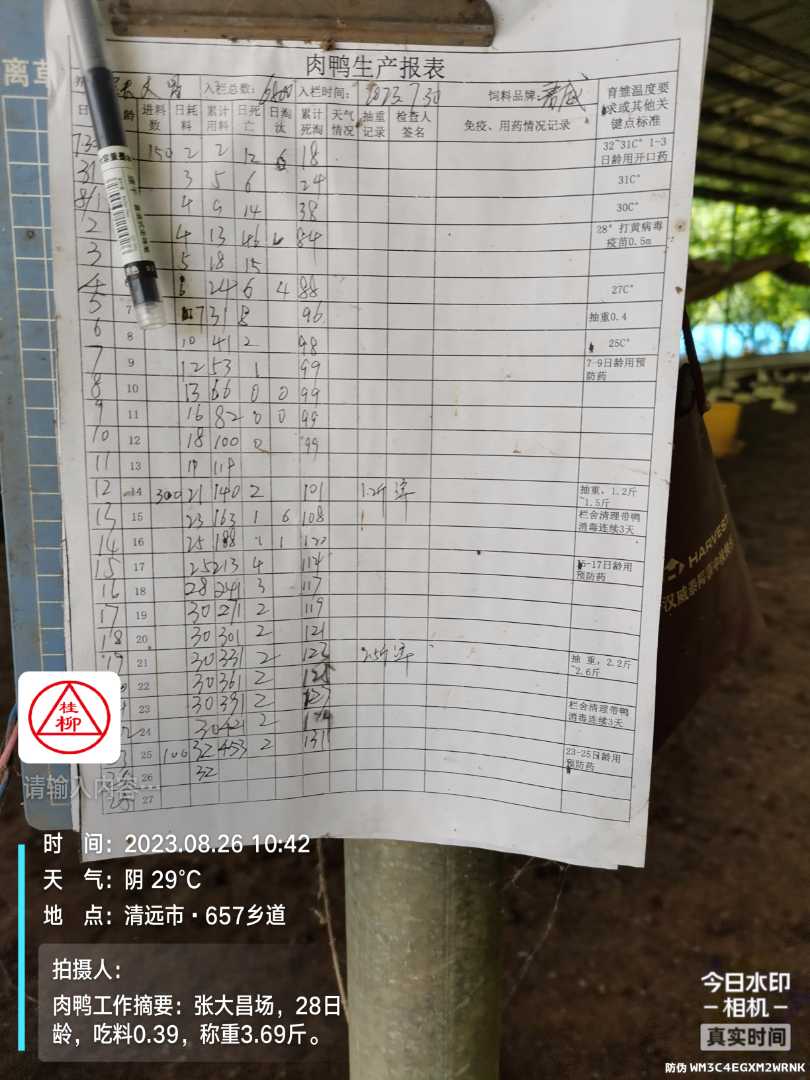 离草
肉鸭生产报表
入栏总数: 入栏时间: 2023.7.30 饲料品牌: 育雏温度要求或其他关键点标准
日 龄 进料数 日耗料 累计用料 日死亡 日淘汰 累计死淘 天气情况 抽重记录 检查人签名 免疫、用药情况记录
150 2 2 12 6 18 32~31C° 1-3日龄用开口药
31 3 5 6 24 31C°
8/1 4 9 14 38 30C°
2 4 13 46 84 28° 打黄病毒疫苗0.5m
3 5 18 15
4 6 24 6 4 88 27C°
5 7 7 31 8 96 抽重0.4
6 8 10 41 2 98 25C°
7 9 12 53 1 99 7-9日龄用预防药
8 10 13 66 0 0 99
9 11 16 82 0 0 99
10 12 18 100 0 99
11 13 118
12 14 300 21 140 2 101 抽重,1.2斤~1.5斤
13 15 23 163 1 6 108 栏舍清理带鸭消毒连续3天
14 16 25 188 1
15 17 25 213 4 114 15-17日龄用预防药
16 18 28 241 3 117
17 19 30 271 2 119
18 20 30 301 2 121
19 21 30 331 2 123 抽 重,2.2斤~2.6斤
22 30 361 2 125
23 30 391 2 127 栏舍清理带鸭消毒连续3天
24 30 421 2
25 100 32 453 2 131 23-25日龄用预防药
26 32
27
HARVEST
桂柳
请输入内容...
时 间: 2023.08.26 10:42
天 气: 阴 29℃
地 点: 清远市·657乡道
拍摄人:
肉鸭工作摘要: 张大昌场，28日
龄，吃料0.39，称重3.69斤。
今日水印
相机
真实时间
防伪 WM3C4EGXM2WRNK